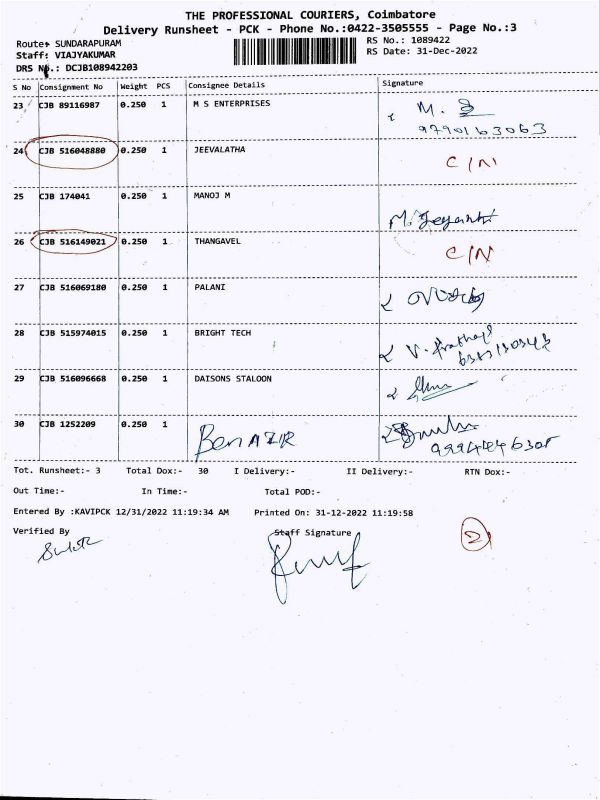 THE PROFESSIONAL COURIERS, Coimbatore
Delivery Runsheet - PCK - Phone No.:0422-3505555 - Page No.:3
Route: SUNDARAPURAM
RS No.: 1089422
Staff: VIAJYAKUMAR
RS Date: 31-Dec-2022
DRS No.: DCJB108942203
S No Consignment No Weight PCS Consignee Details Signature
23 CJB 89116987 0.250 1 M S ENTERPRISES M.
9790163063
24 CJB 516048880 0.250 1 JEEVALATHA C/N
25 CJB 174041 0.250 1 MANOJ M
M. Jeyanthi
26 CJB 516149021 0.250 1 THANGAVEL C/N
27 CJB 516069180 0.250 1 PALANI
28 CJB 515974015 0.250 1 BRIGHT TECH
29 CJB 516096668 0.250 1 DAISONS STALOON
30 CJB 1252209 0.250 1 BenAZIR
Tot. Runsheet:- 3 Total Dox:- 30 I Delivery:- II Delivery:- RTN Dox:-
Out Time:- In Time:- Total POD:-
Entered By :KAVIPCK 12/31/2022 11:19:34 AM Printed On: 31-12-2022 11:19:58
Verified By Staff Signature
2